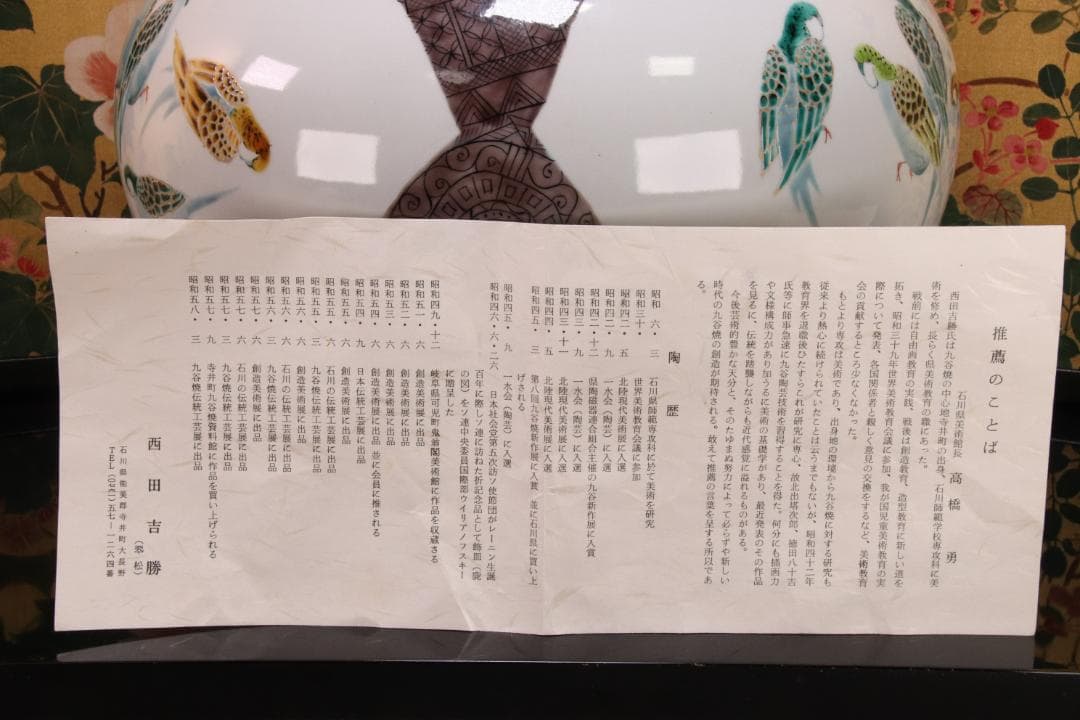 推薦のことば
石川県美術館長　高橋　勇
西田吉勝氏は九谷焼の中心地寺井町の出身、石川師範学校専攻科に美
術を修め、長らく県美術教育の職にあった。
戦前には自由画教育の実践、戦後は創造教育、造型教育に新しい道を
拓き、昭和三十九年世界美術教育会議に参加、我が国児童美術教育の実
際について発表、各国関係者と親しく意見の交換をするなど、美術教育
会の貢献するところ少なくなかった。
もとより専攻は美術であり、出身地の環境から九谷焼に対する研究も
従来より熱心に続けられていたことは云うまでもないが、昭和四十二年
教育界を退職後ひたすらこれが研究に専心、故北出塔次郎、徳田八十吉
氏等に師事急速に九谷陶芸技術を習得することを得た。何分にも描画力
や文様構成力があり加うるに美術の基礎学があり、最近発表のその作品
を見るに、伝統を踏襲しながらも近代感覚に溢れるものがある。
今後芸術的豊かな天分と、そのたゆまぬ努力によって必らずや新しい
時代の九谷焼の創造が期待される。敢えて推薦の言葉を呈する所以であ
る。
陶　歴
昭和　六・　三　石川県師範専攻科に於て美術を研究
昭和三十・　世界美術教育会議に参加
昭和四二・　五　北陸現代美術展に入選
昭和四二・　九　一水会（陶芸）に入選
昭和四二・十二　県陶磁器連合組合主催の九谷新作展に入賞
昭和四三・　九　一水会（陶芸）に入選
昭和四三・十一　北陸現代美術展に入選
昭和四四・　五　北陸現代美術展に入選
昭和四五・　三　第八回九谷焼新作展に入賞、並に石川県に買い上
げされる
昭和四五・　九　一水会（陶芸）に入選
昭和四六・六・二六　日本社会党第五次訪ソ使節団がレーニン生誕
百年に際しソ連に訪ねた折記念品として飾皿（鹿
の図）をソ連中央委員国際部ウイリアノフスキー
に贈呈した
昭和四九・十二　岐阜県可児町鬼峯閣美術館に作品を収蔵さる
昭和五一・　六　創造美術展に出品
昭和五二・　六　創造美術展に出品
昭和五三・　六　創造美術展に出品
昭和五四・　六　創造美術展に出品　並に会員に推される
昭和五四・　九　日本伝統工芸展に出品
昭和五五・　六　創造美術展に出品
昭和五五・　六　石川の伝統工芸展に出品
昭和五五・　三　九谷焼伝統工芸展に出品
昭和五六・　六　創造美術展に出品
昭和五六・　六　石川の伝統工芸展に出品
昭和五六・　三　九谷焼伝統工芸展に出品
昭和五七・　六　創造美術展に出品
昭和五七・　六　石川の伝統工芸展に出品
昭和五七・　三　九谷焼伝統工芸展に出品
昭和五七・　九　寺井町九谷焼資料館に作品を買い上げられる
昭和五八・　三　九谷焼伝統工芸展に出品
西　田　吉　勝
石川県能美郡寺井町大長野